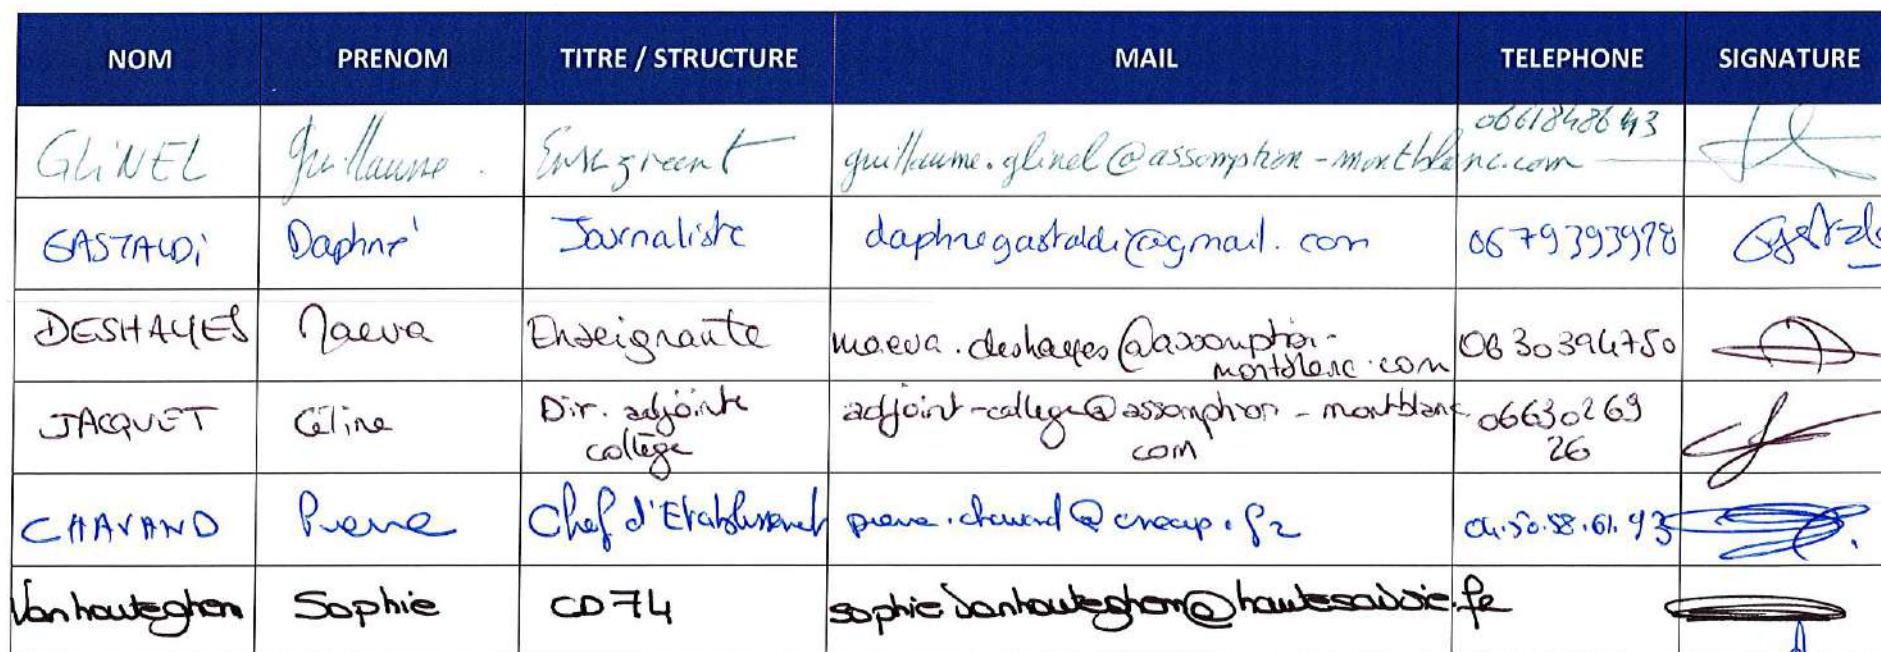 NOM PRENOM TITRE / STRUCTURE MAIL TELEPHONE SIGNATURE
GLiNEL Guillaume. Enseignant guillaume.glinel@assomption-montblanc.com 0661848643
GASTALDi Daphné Journaliste daphnegastaldi@gmail.com 0679393928
DESHAYES Maeva Enseignante maeva.deshayes@assomption-
montblanc.com 0630394750
JACQUET Céline Dir. adjointe
collège adjoint-college@assomption-montblanc.
com 06630269
26
CHAVAND Pierre Chef d'Etablissement pierre.chavand@cneap.fr 04.50.58.61.93
Vanhouteghem Sophie CD74 sophie.vanhouteghem@hautesavoie.fr